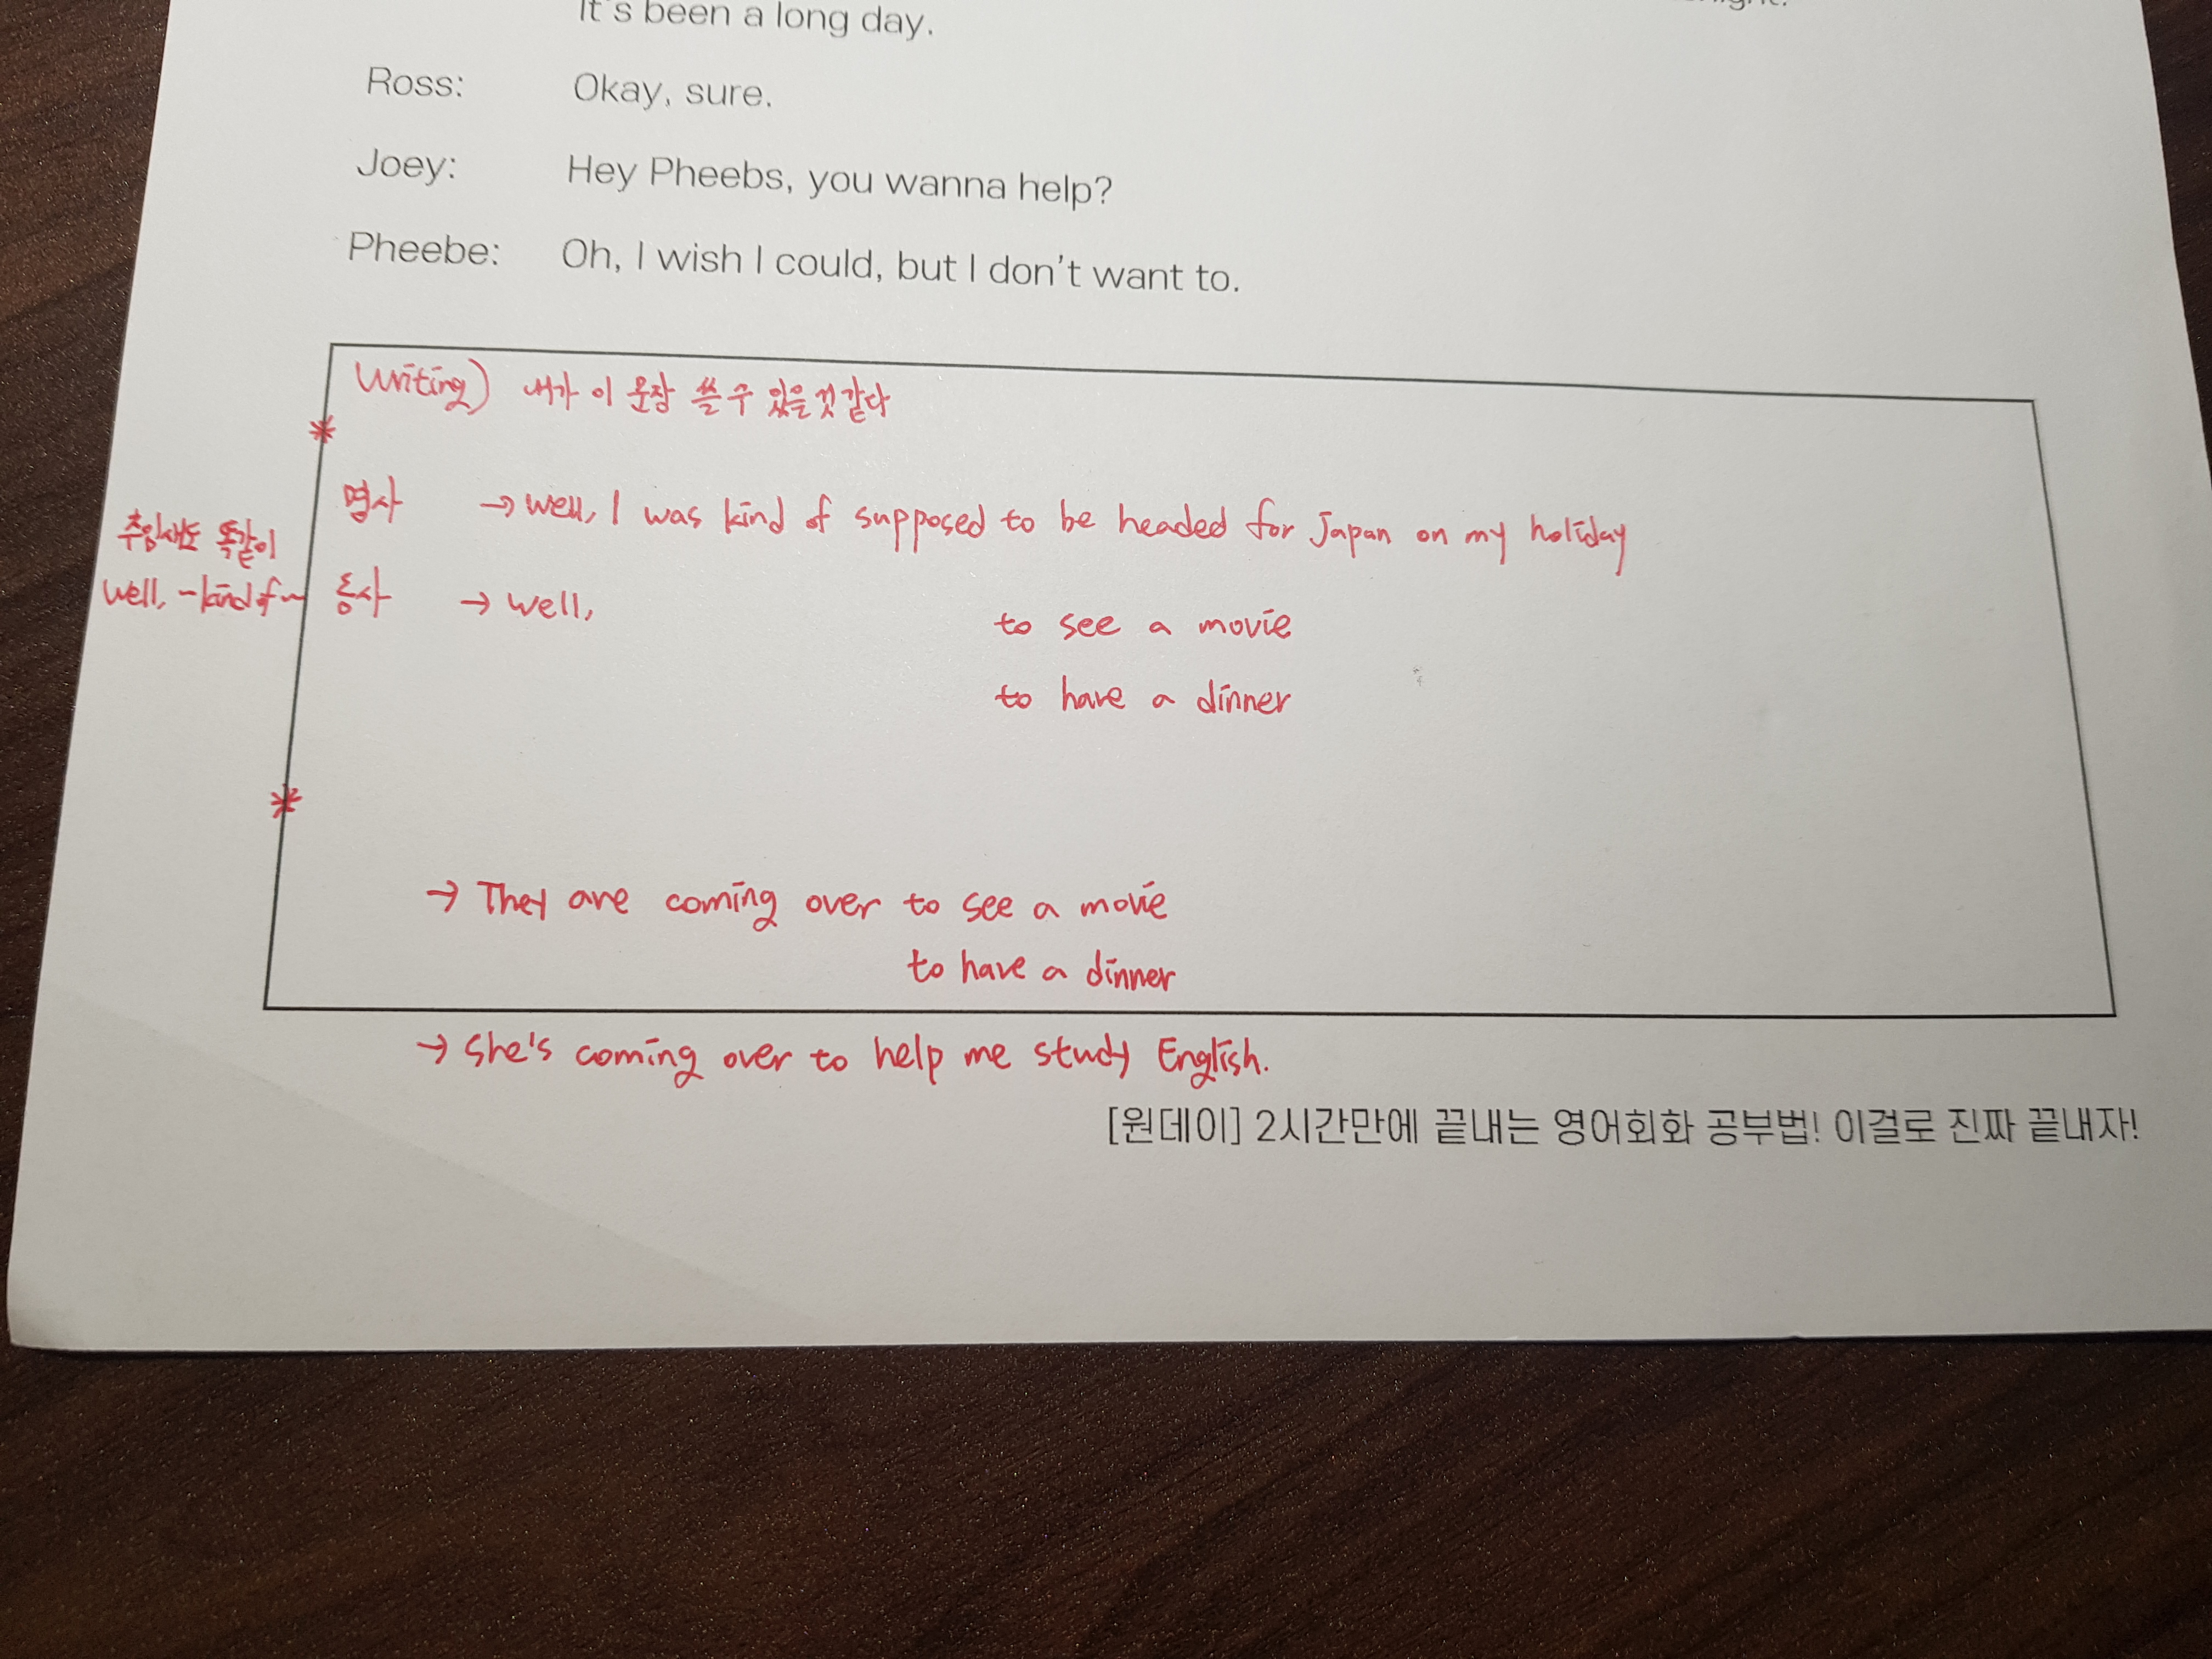 It's been a long day.
Ross: Okay, sure.
Joey: Hey Pheebs, you wanna help?
Pheebe: Oh, I wish I could, but I don't want to.
Writing) 내가 이 문장 쓸 수 있을것 같다
*
명사 → well, I was kind of supposed to be headed for Japan on my holiday
추임새도 똑같이
well, ~kind of~
동사 → well, to see a movie
to have a dinner
*
→ They are coming over to see a movie
to have a dinner
→ She's coming over to help me study English.
[원데이] 2시간만에 끝내는 영어회화 공부법! 이걸로 진짜 끝내자!